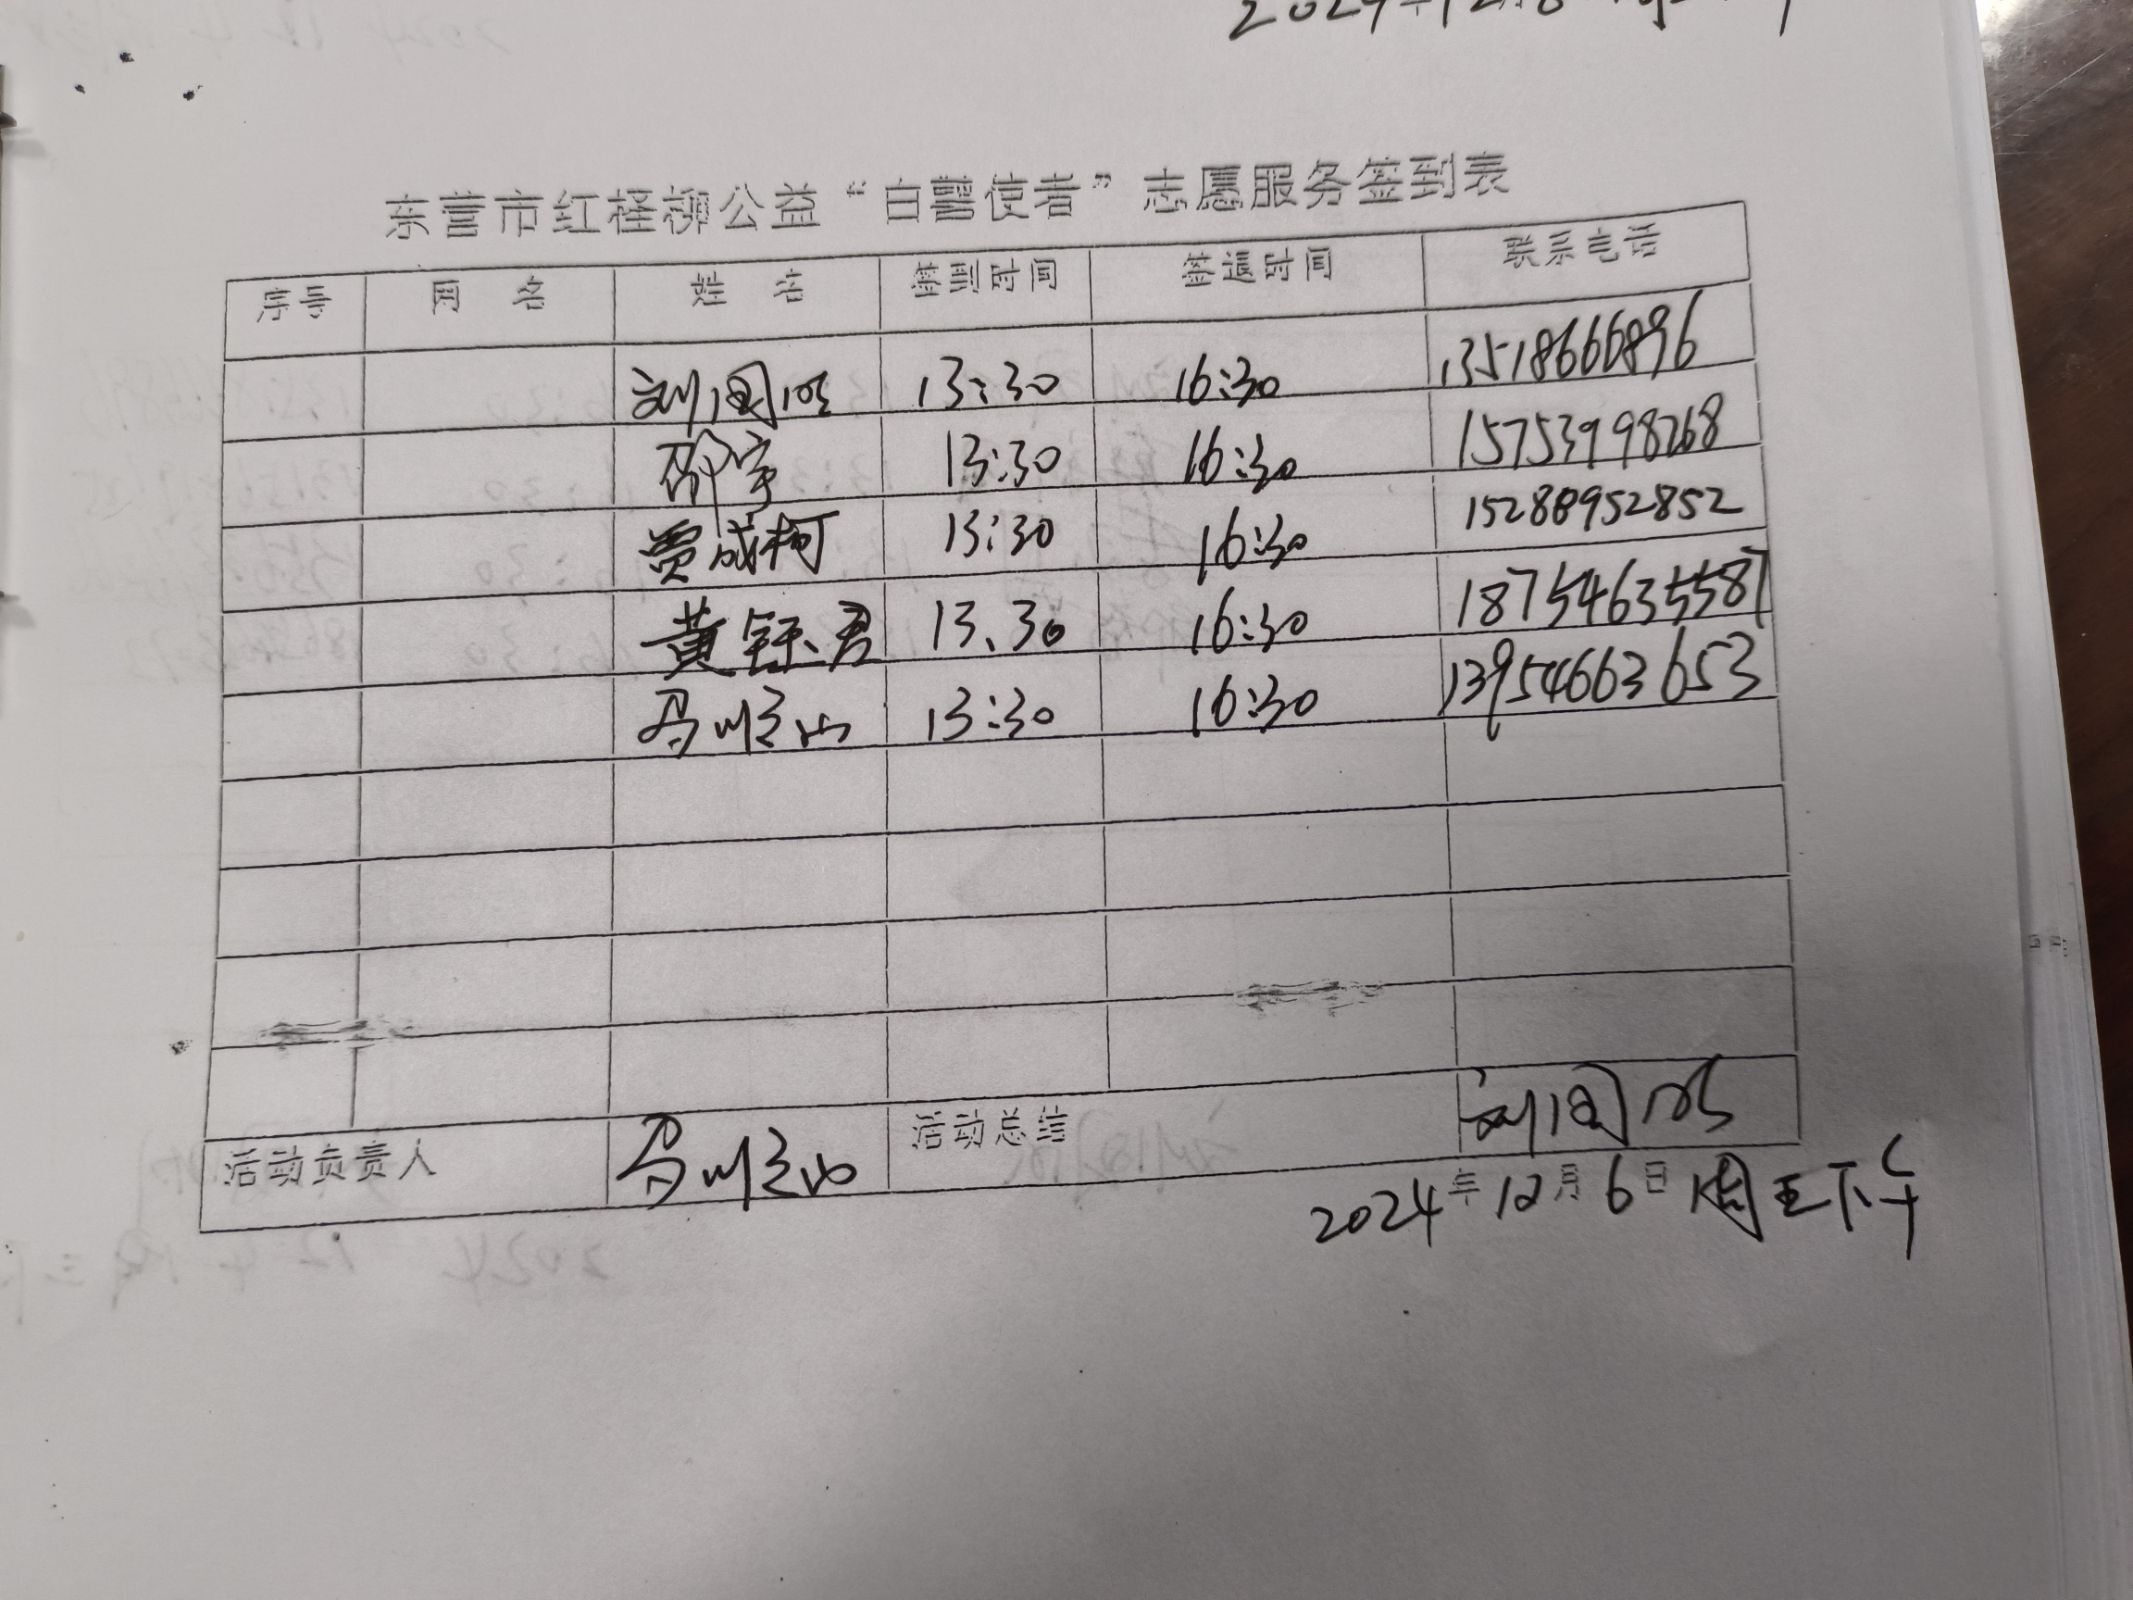 东营市红柽柳公益“白鹭使者”志愿服务签到表
序号 网名 姓名 签到时间 签退时间 联系电话
刘国明 13:30 16:30 13518666896
邵宇 13:30 16:30 15753998268
贾成柯 13:30 16:30 15288952852
黄钰君 13.30 16:30 18754635587
马顺山 13:30 16:30 13954663653
活动负责人 马顺山 活动总结 刘国明
2024年12月6日 周五下午